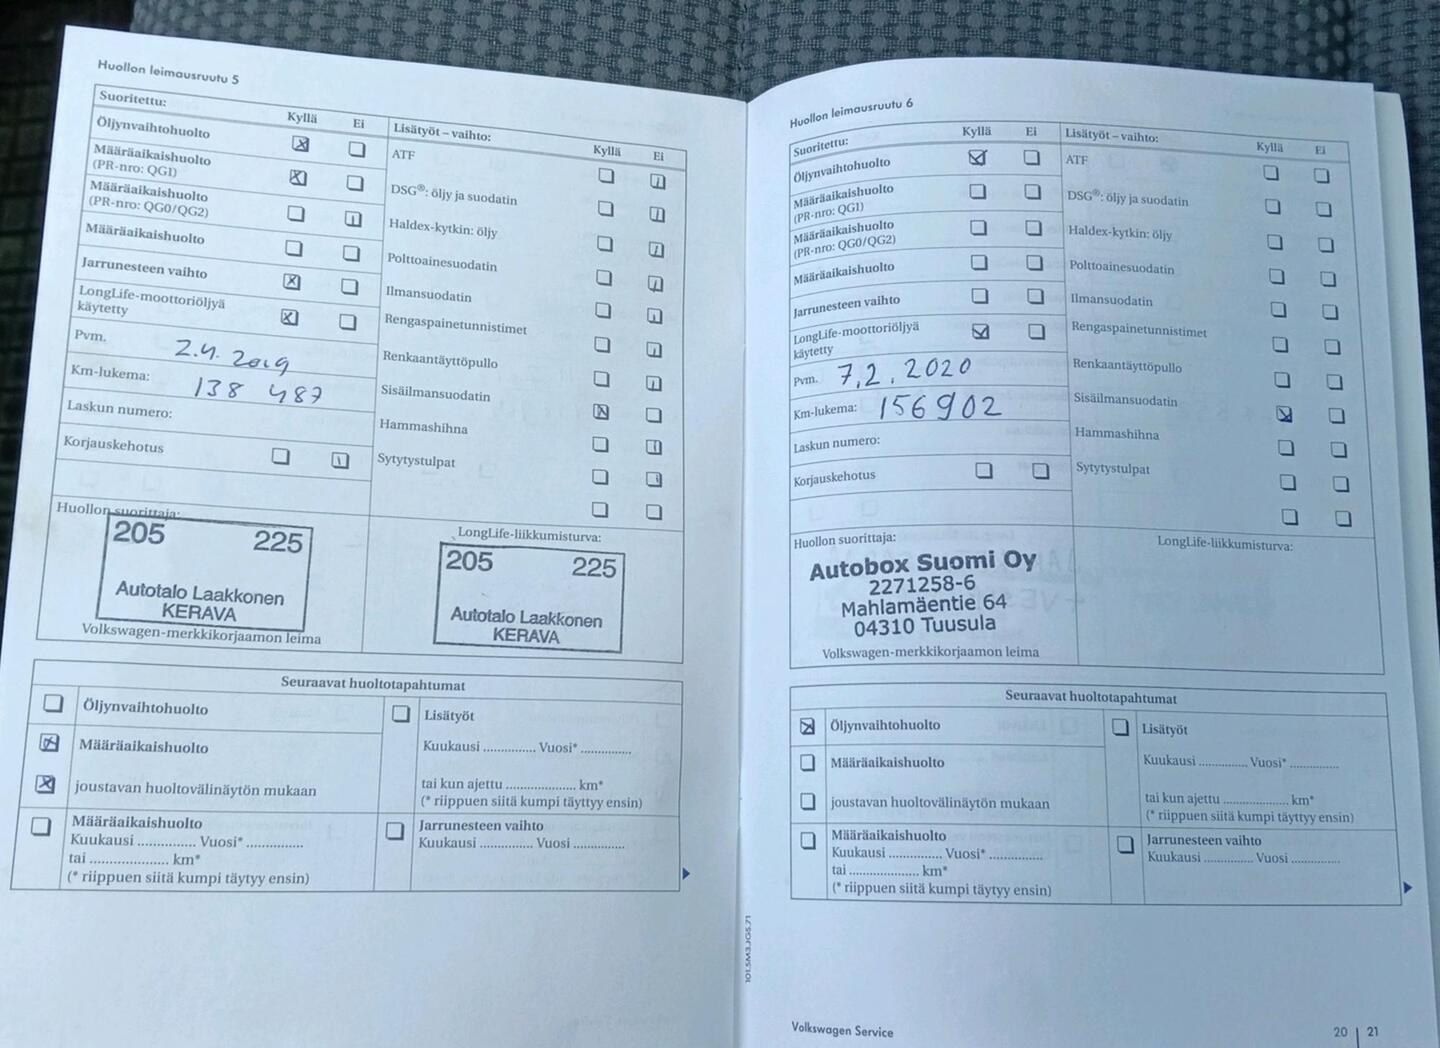 Huollon leimausruutu 5
Suoritettu:
Kyllä
Ei
Öljynvaihtohuolto
Määräaikaishuolto
(PR-nro: QG1)
Määräaikaishuolto
(PR-nro: QG0/QG2)
Määräaikaishuolto
Jarrunesteen vaihto
LongLife-moottoriöljyä
käytetty
Pvm. 2.4.2019
Km-lukema: 138 487
Laskun numero:
Korjauskehotus
Lisätyöt – vaihto:
Kyllä
Ei
ATF
DSG®: öljy ja suodatin
Haldex-kytkin: öljy
Polttoainesuodatin
Ilmansuodatin
Rengaspainetunnistimet
Renkaantäyttöpullo
Sisäilmansuodatin
Hammashihna
Sytytystulpat
Huollon suorittaja:
205 225
Autotalo Laakkonen
KERAVA
Volkswagen-merkkikorjaamon leima
LongLife-liikkumisturva:
205 225
Autotalo Laakkonen
KERAVA
Seuraavat huoltotapahtumat
Öljynvaihtohuolto
Määräaikaishuolto
joustavan huoltovälinäytön mukaan
Määräaikaishuolto
Kuukausi ............... Vuosi* ...............
tai ..................... km*
(* riippuen siitä kumpi täytyy ensin)
Lisätyöt
Kuukausi .............. Vuosi* ..............
tai kun ajettu .................... km*
(* riippuen siitä kumpi täyttyy ensin)
Jarrunesteen vaihto
Kuukausi .............. Vuosi ..............
Huollon leimausruutu 6
Suoritettu:
Kyllä
Ei
Öljynvaihtohuolto
Määräaikaishuolto
(PR-nro: QG1)
Määräaikaishuolto
(PR-nro: QG0/QG2)
Määräaikaishuolto
Jarrunesteen vaihto
LongLife-moottoriöljyä
käytetty
Pvm. 7.2.2020
Km-lukema: 156902
Laskun numero:
Korjauskehotus
Lisätyöt – vaihto:
Kyllä
Ei
ATF
DSG®: öljy ja suodatin
Haldex-kytkin: öljy
Polttoainesuodatin
Ilmansuodatin
Rengaspainetunnistimet
Renkaantäyttöpullo
Sisäilmansuodatin
Hammashihna
Sytytystulpat
Huollon suorittaja:
Autobox Suomi Oy
2271258-6
Mahlamäentie 64
04310 Tuusula
Volkswagen-merkkikorjaamon leima
LongLife-liikkumisturva:
Seuraavat huoltotapahtumat
Öljynvaihtohuolto
Määräaikaishuolto
joustavan huoltovälinäytön mukaan
Määräaikaishuolto
Kuukausi .............. Vuosi* ..............
tai .................... km*
(* riippuen siitä kumpi täytyy ensin)
Lisätyöt
Kuukausi .............. Vuosi* ..............
tai kun ajettu .................... km*
(* riippuen siitä kumpi täyttyy ensin)
Jarrunesteen vaihto
Kuukausi .............. Vuosi ..............
101.5M3.JG5.71
Volkswagen Service
20 | 21